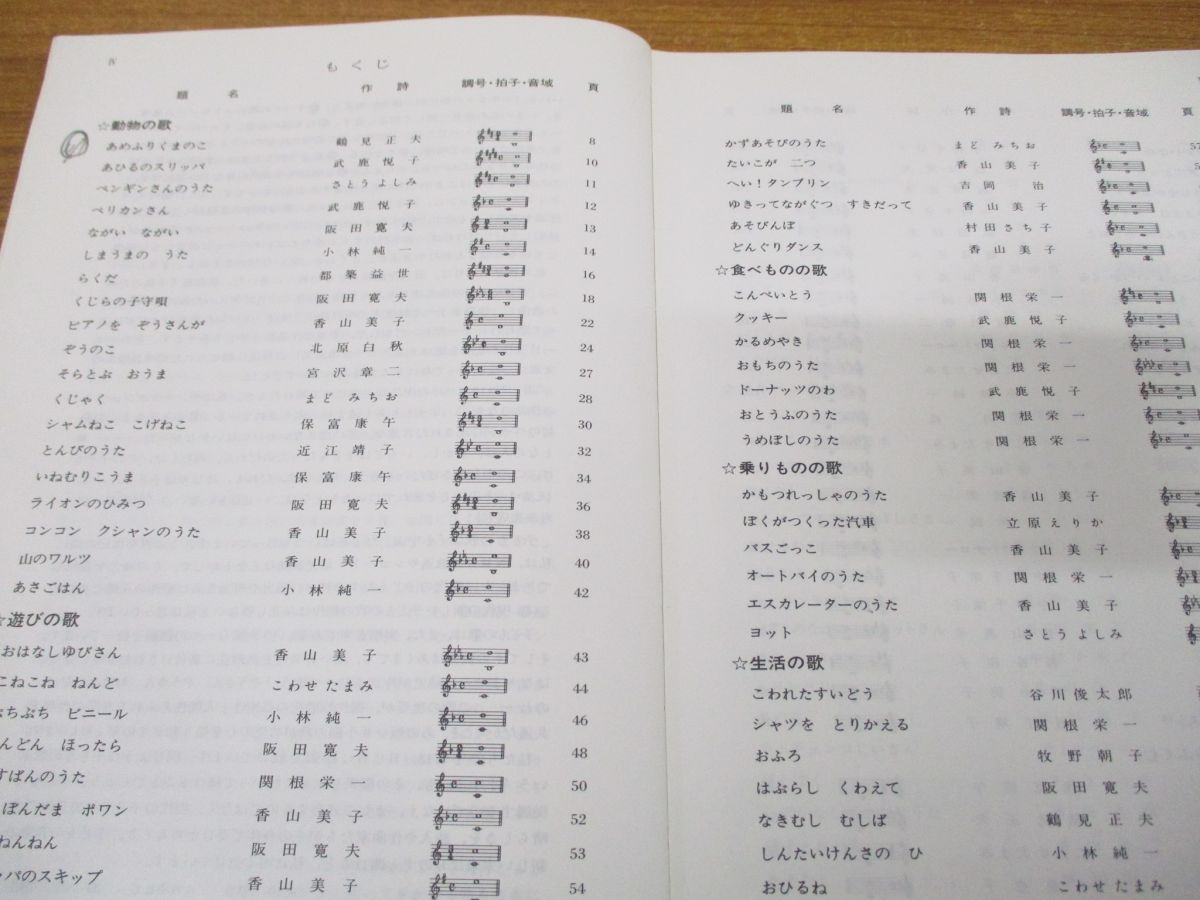 Ⅳ
もくじ
題 名 作 詩 調号・拍子・音域 頁
☆動物の歌
あめふりくまのこ 鶴見正夫 8
あひるのスリッパ 武鹿悦子 10
ペンギンさんのうた さとうよしみ 11
ペリカンさん 武鹿悦子 12
ながい ながい 阪田寛夫 13
しまうまの うた 小林純一 14
らくだ 都築益世 16
くじらの子守唄 阪田寛夫 18
ピアノを ぞうさんが 香山美子 22
ぞうのこ 北原白秋 24
そらとぶ おうま 宮沢章二 27
くじゃく まど みちお 28
シャムねこ こげねこ 保富康午 30
とんびのうた 近江靖子 32
いねむりこうま 保富康午 34
ライオンのひみつ 阪田寛夫 36
コンコン クシャンのうた 香山美子 38
山のワルツ 香山美子 40
あさごはん 小林純一 42
☆遊びの歌
おはなしゆびさん 香山美子 43
こねこね ねんど こわせ たまみ 44
ぷちぷち ビニール 小林純一 46
んどん ほったら 阪田寛夫 48
すばんのうた 関根栄一 50
ぼんだま ボワン 香山美子 52
ねんねん 阪田寛夫 53
パのスキップ 香山美子 54
題 名 作 詩 調号・拍子・音域 頁
かずあそびのうた まど みちお 57
たいこが 二つ 香山美子 5
へい！タンブリン 吉岡 治
ゆきってながぐつ すきだって 香山美子
あそびんぼ 村田さち子
どんぐりダンス 香山美子
☆食べものの歌
こんぺいとう 関根栄一
クッキー 武鹿悦子
かるめやき 関根栄一
おもちのうた 関根栄一
ドーナッツのわ 武鹿悦子
おとうふのうた 関根栄一
うめぼしのうた 関根栄一
☆乗りものの歌
かもつれっしゃのうた 香山美子
ぼくがつくった汽車 立原えりか
バスごっこ 香山美子
オートバイのうた 関根栄一
エスカレーターのうた 香山美子
ヨット さとう よしみ
☆生活の歌
こわれたすいどう 谷川俊太郎
シャツを とりかえる 関根栄一
おふろ 牧野朝子
はぶらし くわえて 阪田寛夫
なきむし むしば 鶴見正夫
しんたいけんさの ひ 小林純一
おひるね こわせ たまみ